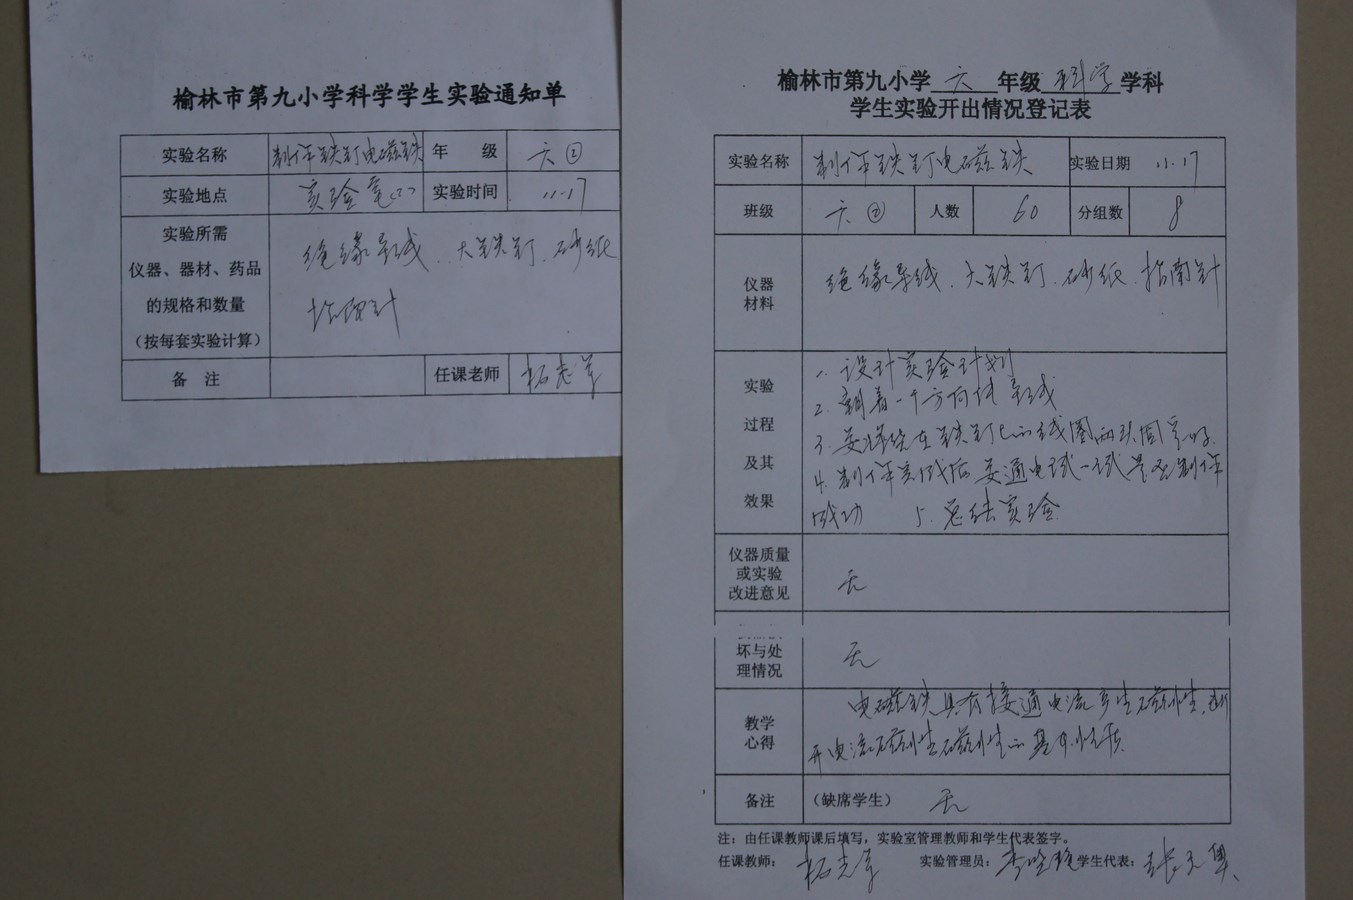 榆林市第九小学科学学生实验通知单
实验名称 制作铁钉电磁铁 年 级 六②
实验地点 实验室(二) 实验时间 11.17
实验所需
仪器、器材、药品
的规格和数量
(按每套实验计算)
绝缘导线、大铁钉、砂纸
指南针
备 注 任课老师
榆林市第九小学 六 年级 科学 学科
学生实验开出情况登记表
实验名称 制作铁钉电磁铁 实验日期 11.17
班级 六② 人数 60 分组数 8
仪器
材料
绝缘导线、大铁钉、砂纸、指南针
实验
过程
及其
效果
1、设计实验计划
2、朝着一个方向绕导线
3、要将绕在铁钉上的线圈两头固定好
4、制作完成后要通电试一试是否制作
成功 5、总结实验
仪器质量
或实验
改进意见
无
坏与处
理情况
无
教学
心得
电磁铁具有接通电流产生磁性,断
开电流磁性 磁性的基本性质
备注 (缺席学生) 无
注:由任课教师课后填写,实验室管理教师和学生代表签字。
任课教师: 实验管理员: 学生代表: